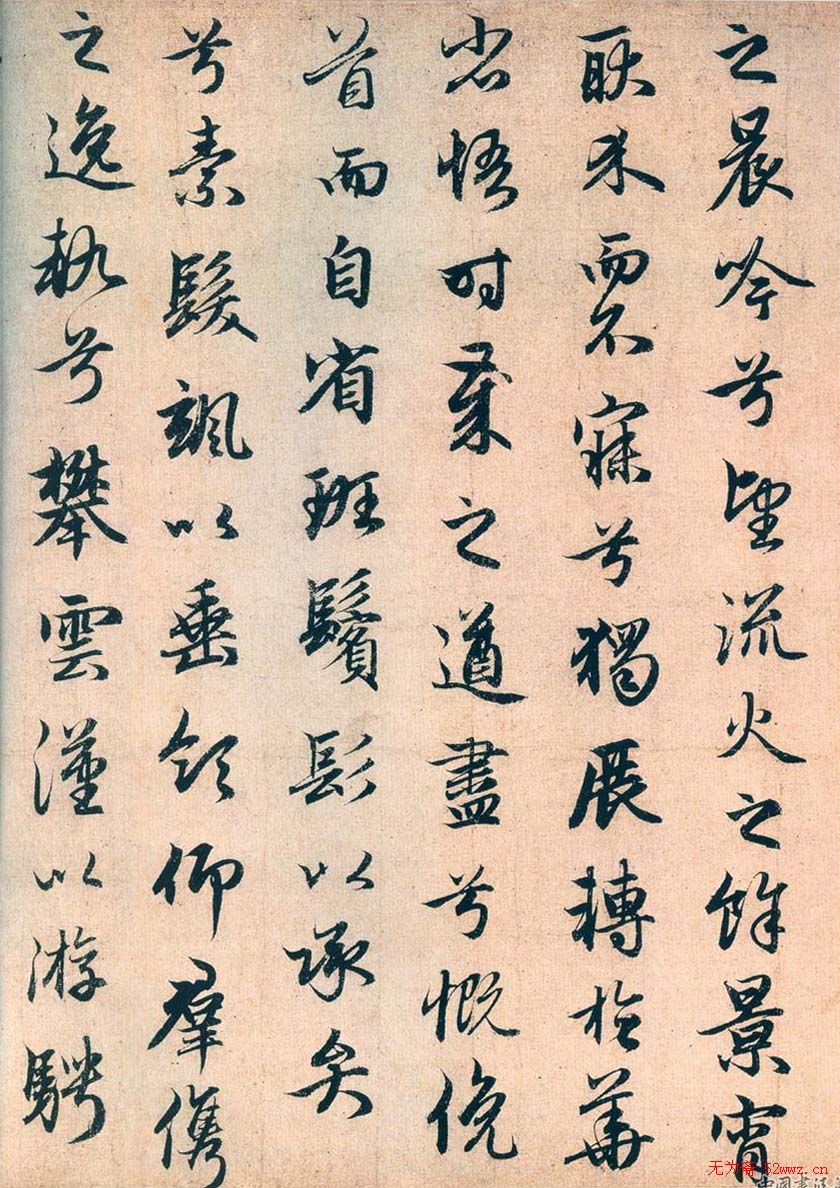 之晨吟兮望流火之餘景宵
耿介而不寐兮獨展轉於華
省悟時歲之遒盡兮慨俛
首而自省班鬢髟以承弁
兮素髮颯以垂領仰羣儁
之逸軌兮攀雲漢以游騁
无为斋 52wwz.cn